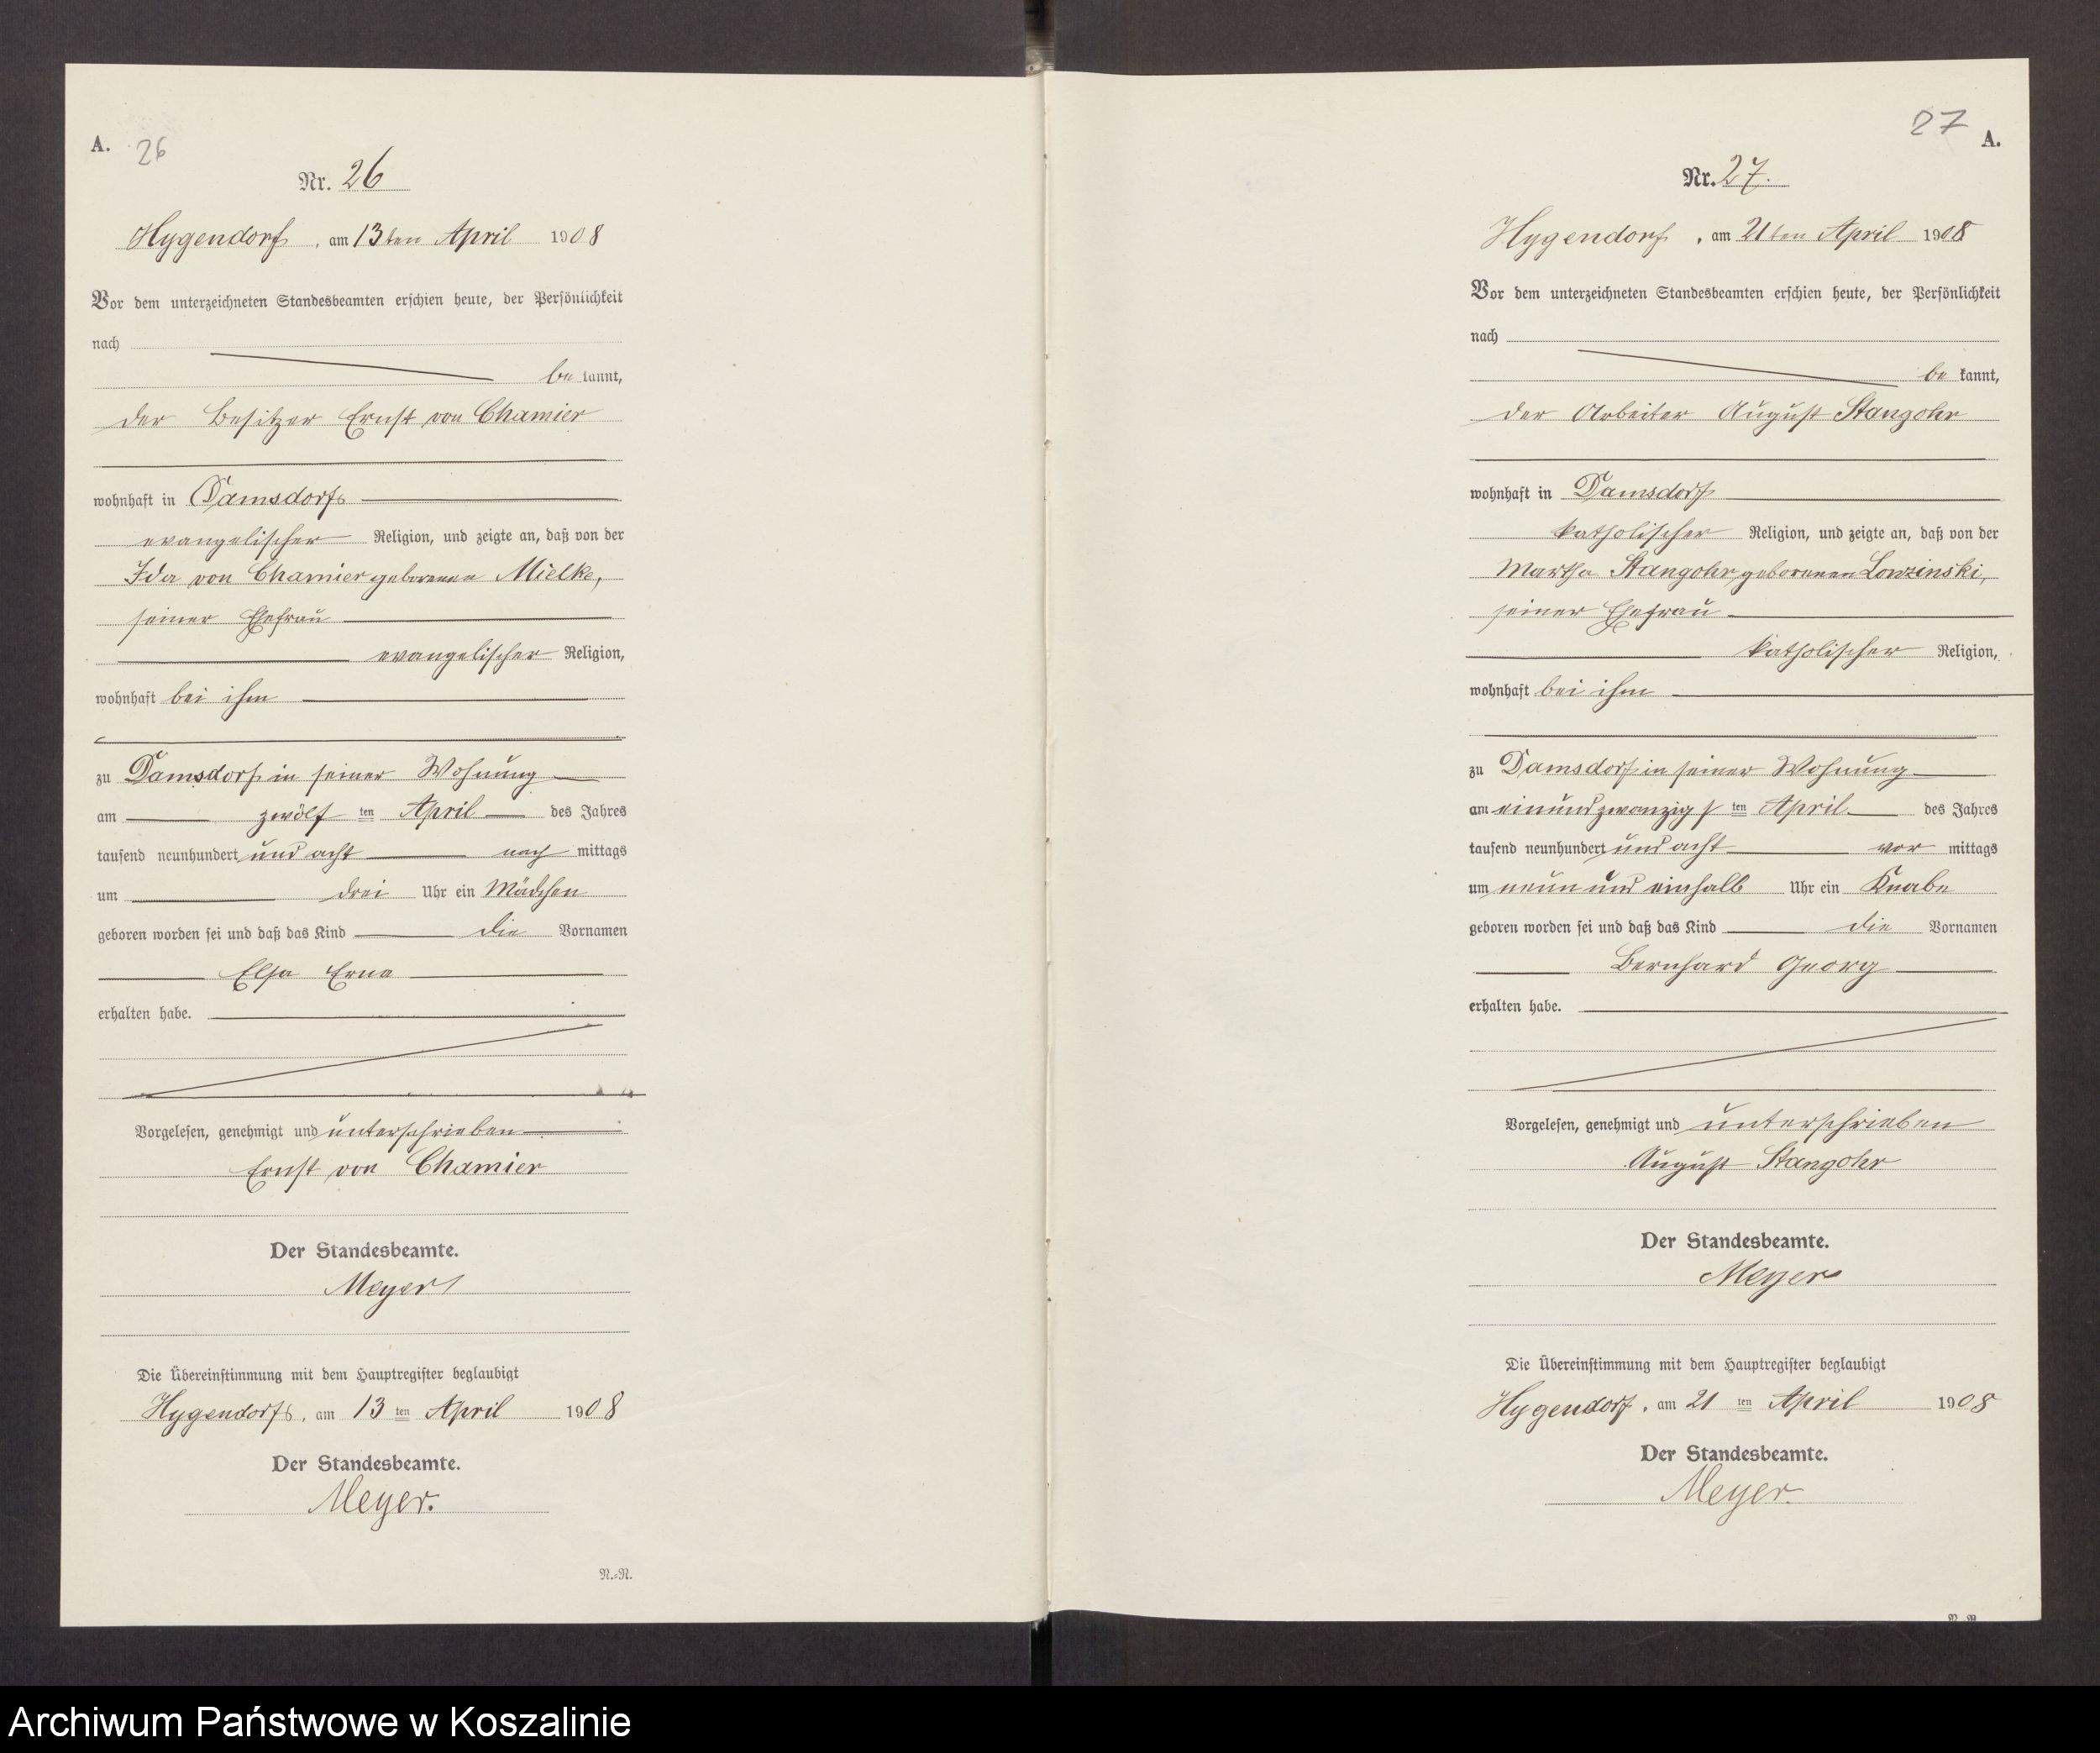 A. 26
Nr. 26
Hygendorf, am 13ten April 1908
Vor dem unterzeichneten Standesbeamten erschien heute, der Persönlichkeit
nach
be kannt,
der Besitzer Ernst von Chamier
wohnhaft in Damsdorf
evangelischer Religion, und zeigte an, daß von der
Ida von Chamier geborenen Mielke,
seiner Ehefrau
evangelischer Religion,
wohnhaft bei ihm
zu Damsdorf in seiner Wohnung
am zwölf ten April des Jahres
tausend neunhundert und acht nach mittags
um drei Uhr ein Mädchen
geboren worden sei und daß das Kind die Vornamen
Elsa Erna
erhalten habe.
Vorgelesen, genehmigt und unterschrieben
Ernst von Chamier
Der Standesbeamte.
Meyer
Die Übereinstimmung mit dem Hauptregister beglaubigt
Hygendorf, am 13 ten April 1908
Der Standesbeamte.
Meyer.
N.=N.
27 A.
Nr. 27.
Hygendorf, am 21ten April 1908
Vor dem unterzeichneten Standesbeamten erschien heute, der Persönlichkeit
nach
be kannt,
der Arbeiter August Stangohr
wohnhaft in Damsdorf
katholischer Religion, und zeigte an, daß von der
Martha Stangohr geborenen Lowzinski,
seiner Ehefrau
katholischer Religion,
wohnhaft bei ihm
zu Damsdorf in seiner Wohnung
am einundzwanzigs ten April des Jahres
tausend neunhundert und acht vor mittags
um neun und einhalb Uhr ein Knabe
geboren worden sei und daß das Kind die Vornamen
Bernhard Georg
erhalten habe.
Vorgelesen, genehmigt und unterschrieben
August Stangohr
Der Standesbeamte.
Meyer
Die Übereinstimmung mit dem Hauptregister beglaubigt
Hygendorf, am 21 ten April 1908
Der Standesbeamte.
Meyer.
Archiwum Państwowe w Koszalinie